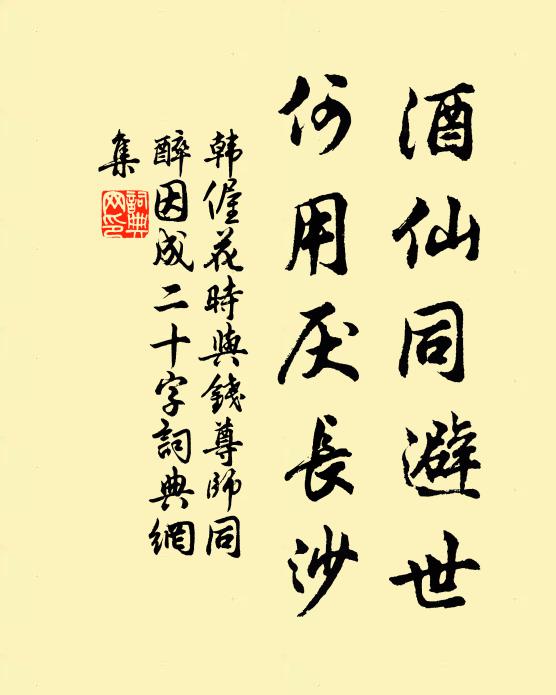 酒仙同避世
何用厌長沙
韩偓花時與錢尊師同
醉因成二十字詞典網
集
詞典
网印